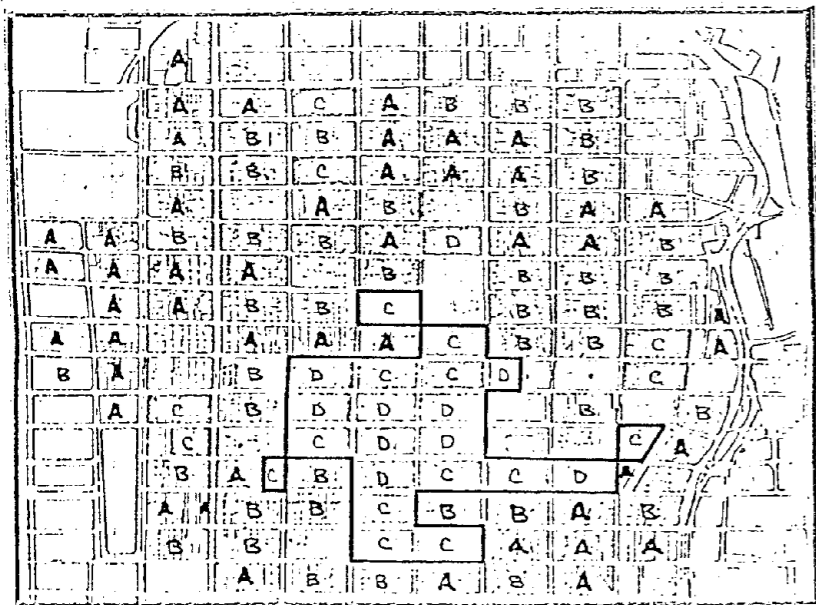 A
A A C A B B B
A B B A A A B
B B C A A A B
A A B B A A
A A B B B A D A A B
A A A A B B B B
A A B B C B B B A
A A A A A C B B C A
B A B D C C D C
A C B D D D B B
C C D D C A
B A C B D C C D A
A A B B C B B A B
B B C C A A A
A B B A B A